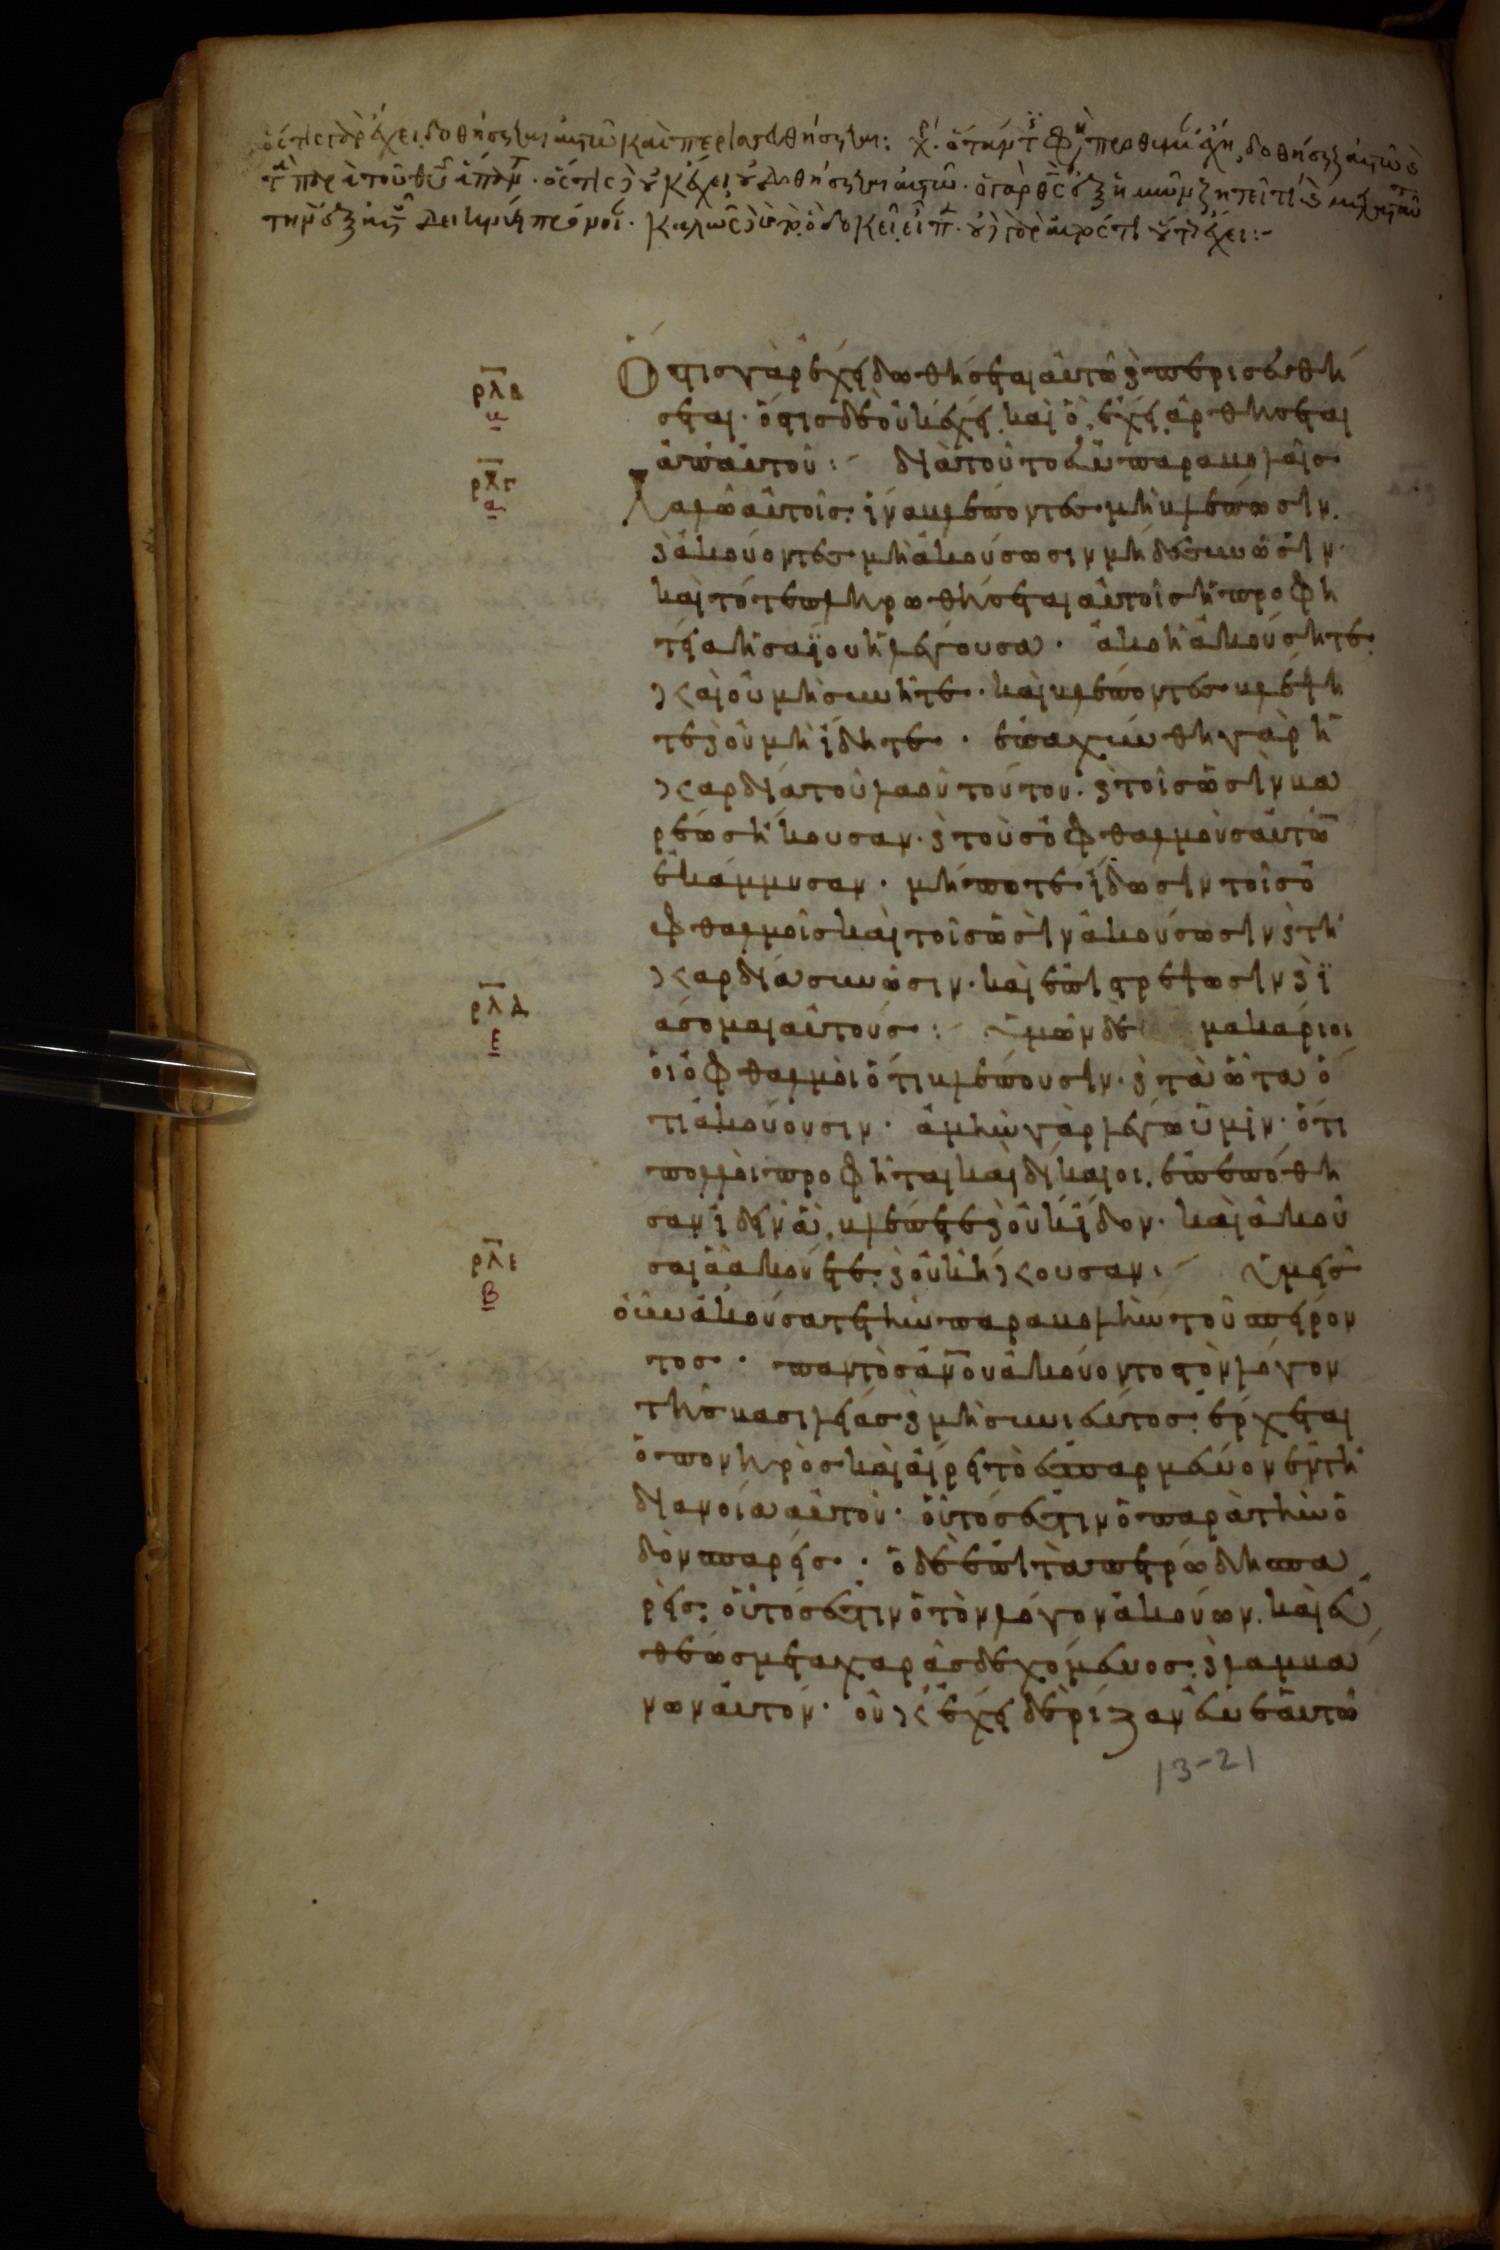 ὅστις γὰρ ἔχει δοθήσεται αὐτῶ καὶ περισσευθήσεται:
ὅστις οὐκ ἔχει
ρλβ
β
Ὅστις γὰρ ἔχει δωθήσεται αὐτῶ ϗ περισευθή
σεται· ὅστις δὲ οὐκ ἔχει, καὶ ὃ ἔχει, ἀρθησεται
ἀπ αὐτοῦ:– διατοῦτο ἐν παραβολαῖσ
ρλγ
α
λαλῶ αὐτοῖς· ἵνα βλέποντες μὴ βλέπωσϊν.
ϗ ἀκούοντες μὴ ἀκούσωσιν μηδὲ συνῶσϊν·
καὶ τότε πληρωθήσεται αὐτοῖς ἡ προφη
τεία ἡσαΐου ἡ λέγουσα· ἀκοῆ ἀκούσητε.
καὶ οὐ μὴ συνῆτε· καὶ βλέποντες βλέψη
τε ϗ οὐ μὴ ἴδητε· ἐπαχύνθη γὰρ ἡ
καρδία τοῦ λαοῦ τούτου· ϗ τοῖς ὠσὶν βα
ρέως ἤκουσαν· ϗ τοὺς ὀφθαλμοὺς αὐτῶ
ἐκάμμυσαν· μήποτε ἴδωσϊν τοῖς ὀ
φθαλμοῖς καὶ τοῖς ὠσὶν ἀκούσωσϊν ϗ τῆ
καρδία συνῶσιν· καὶ ἐπϊστρέψωσϊν ϗ ἰ
άσομαι αὐτούς:– ὑμῶν δὲ μακάριοι
ρλδ
ε
οἱ ὀφθαλμοὶ ὅτι βλέπουσϊν· ϗ τὰ ὦτα ὅ
τι ἀκούουσιν· ἀμὴν γὰρ λέγω ὑμῖν· ὅτι
πολλοὶ προφῆται καὶ δίκαιοι, ἐπεπόθη
σαν ἰδεῖν ἃ βλέπετε ϗ οὐκ εἶδον· καὶ ἀκοῦ
σαι ἃ ἀκούετε, ϗ οὐκ ἤκουσαν:– ὑμεῖς
ρλε
β
οὖν ἀκούσατε τὴν παραβολὴν τοῦ σπείρον
τος· παντὸς ἀνου ἀκούοντος τὸν λόγον
τῆς βασιλείας ϗ μὴ συνιέντος· ἔρχεται
ὁ πονηρὸς καὶ αἴρει τὸ ἐσπαρμένον ἐν τῆ
διανοία αὐτοῦ· οὗτός ἐστιν ὁ παρὰ τὴν ὁ
δὸν σπαρείς· ὁ δὲ ἐπϊ τὰ πετρώδη σπα
ρείς· οὗτός ἐστιν ὁ τὸν λόγον ἀκούων, καὶ εὐ
θέως μετα χαρᾶς δεχόμενος ϗ λαμβά
νων αὐτόν· οὐκ ἔχει δὲ ρίζαν ἐν ἑαυτῶ
13-21